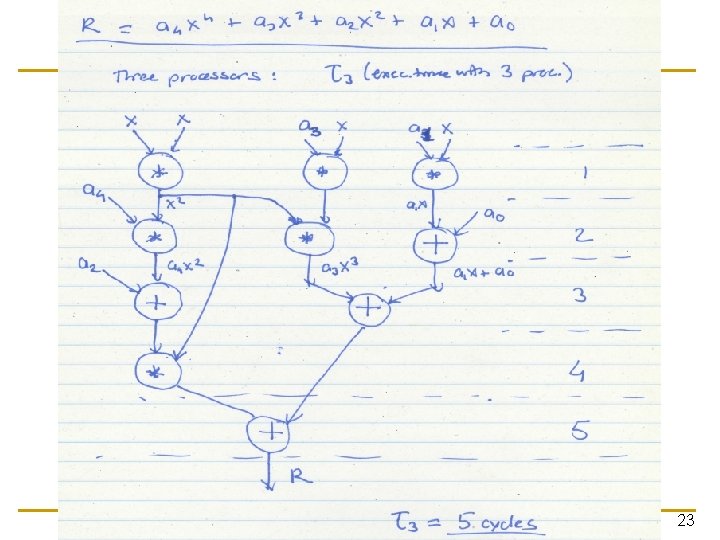 R = a₄x⁴ + a₃x³ + a₂x² + a₁x + a₀
Three processors : T₃ (exec. time with 3 proc.)
x x a₃ x a₁ x
* * * 1
a₄ x² a₁x a₀
* * + 2
a₂ a₄x² a₃x³ a₁x + a₀
+ + 3
* 4
+ 5
R
T₃ = 5 cycles
23